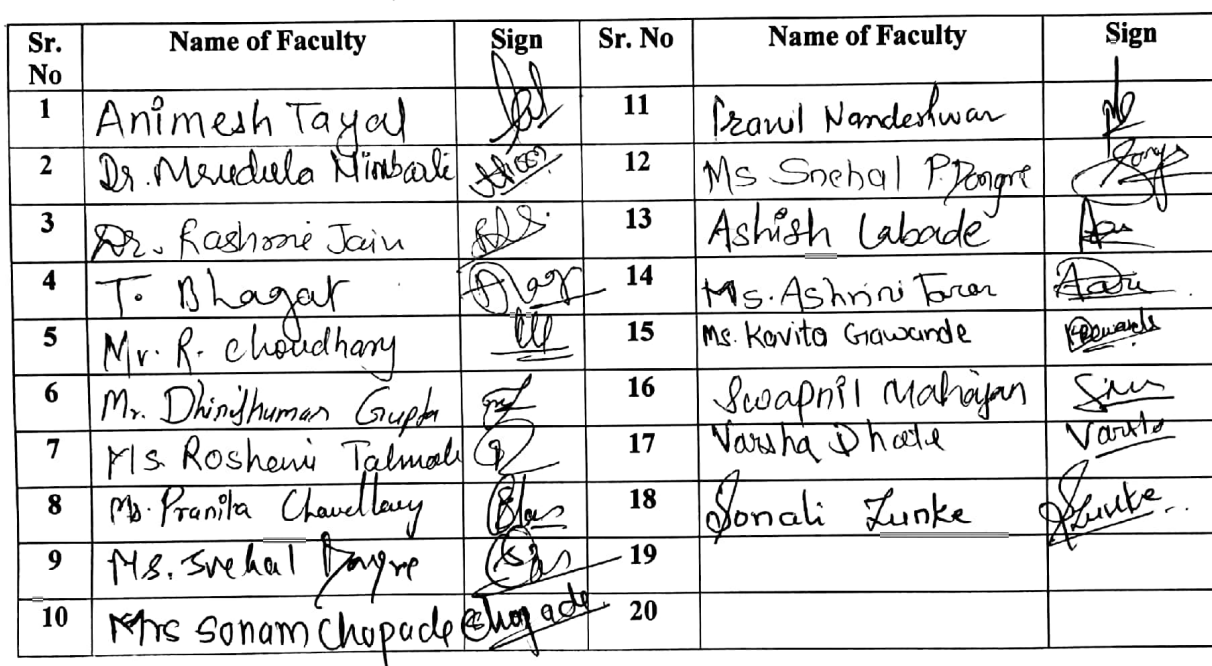 Sr. No Name of Faculty Sign Sr. No Name of Faculty Sign
1 Animesh Tayal 11 Pranil Nandeshwar
2 Dr. Mrudula Nimbarte 12 Ms Snehal P. Dongre Dongre
3 Dr. Rashmi Jain 13 Ashish Labade
4 T. Bhagat 14 Ms. Ashvini Tarar
5 Mr. R. Choudhary 15 Ms. Kavita Gawande
6 Mr. Gupta 16 Swapnil Mahajan
7 Ms. Roshani Talmale 17 Varsha Dhate Varsha
8 Ms. Pranita Chaudhary 18 Sonali Zunke Zunke
9 Ms. Snehal Dongre 19
10 Mrs Sonam Chopade Chopade 20